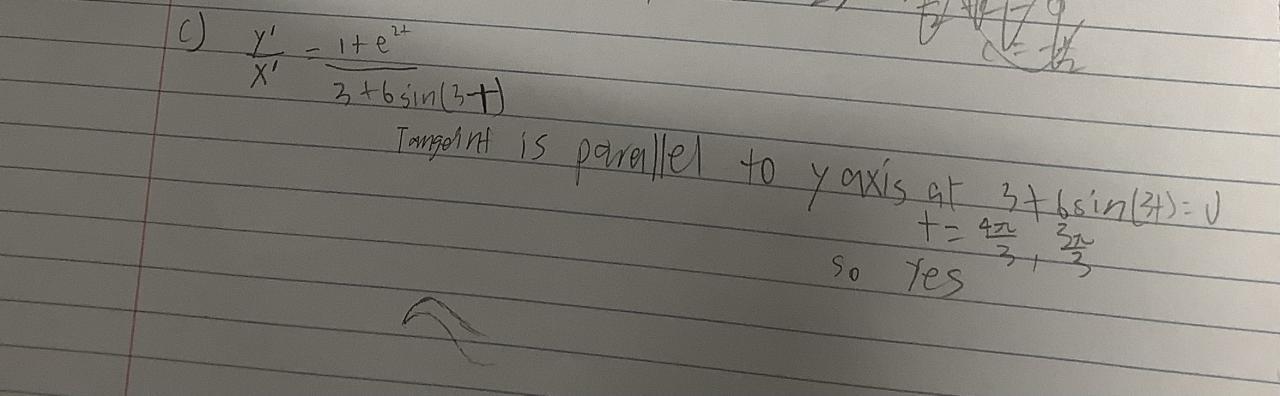 c) y'/x' = 1+e^2t / 3+6sin(3t)
Tangent is parallel to y axis at 3+6sin(3t)=0
t = 4π/3, 3π/3
so Yes